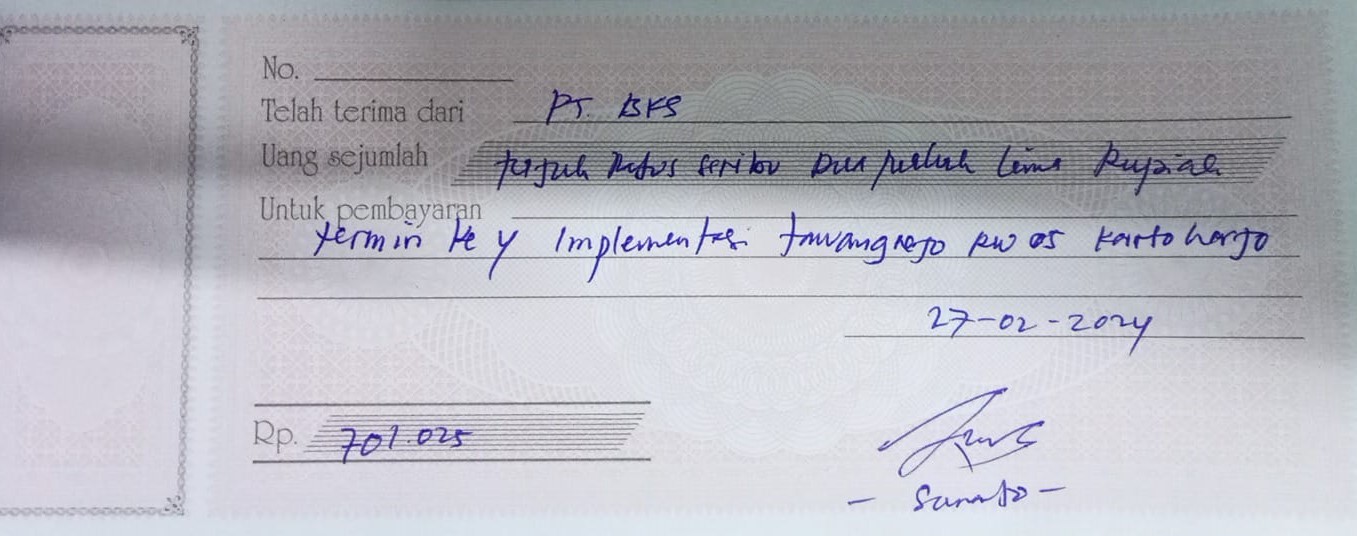 No.
Telah terima dari PT. BKS
Uang sejumlah tujuh Ratus seribu Dua puluh Lima Rupiah
Untuk pembayaran
termin ke 4 Implementasi tawangrejo RW 05 Kartoharjo
27-02-2024
Rp. 701.025